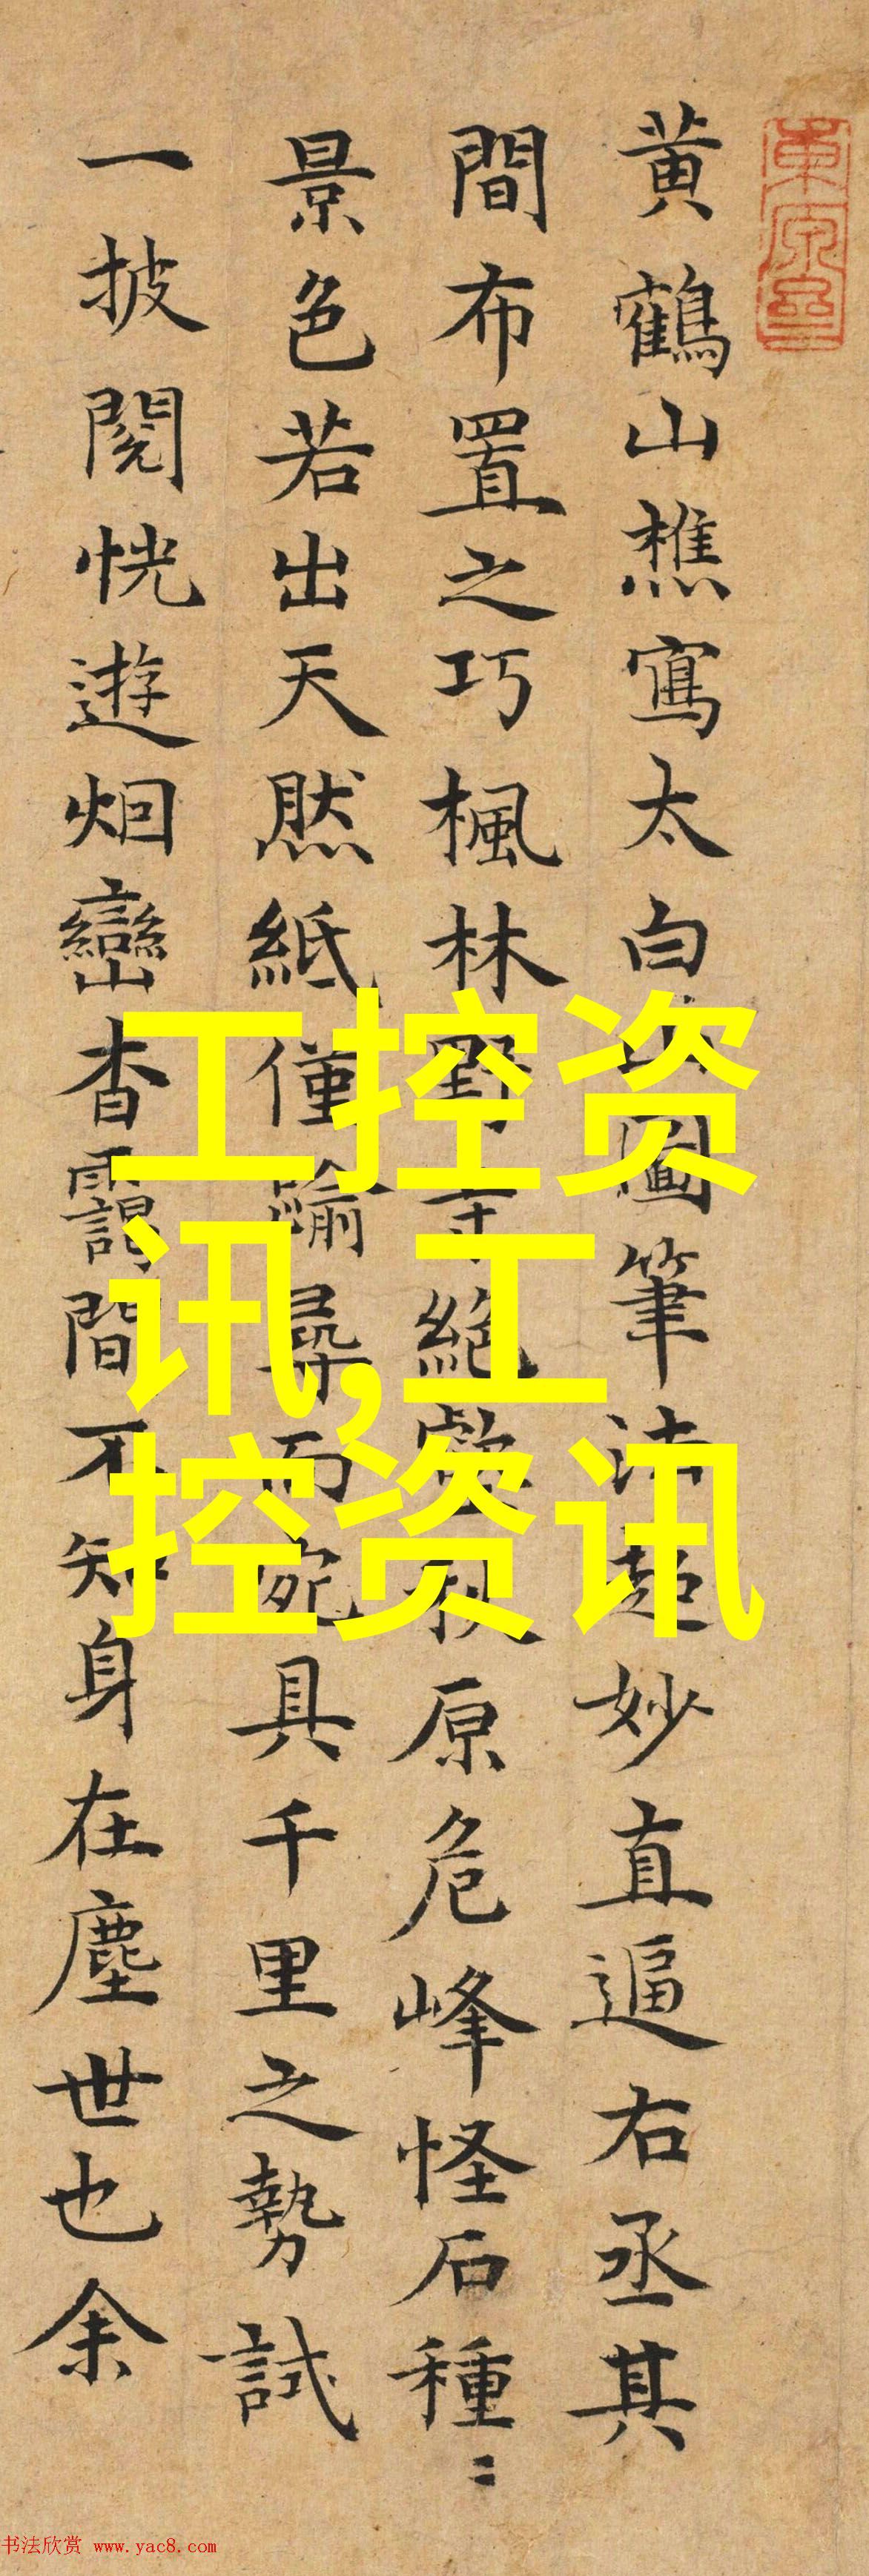 黄鶴山樵寫太白山圖筆法超妙直逼右丞其
間布置之巧楓林野寺絕壑秋原危峰怪石種〻
景色若出天然紙僅踰尋而宛具千里之勢試
一披閱恍遊烟巒杳靄間不知身在塵世也余
工控资
讯,工
控资讯
书法欣赏 www.yac8.com